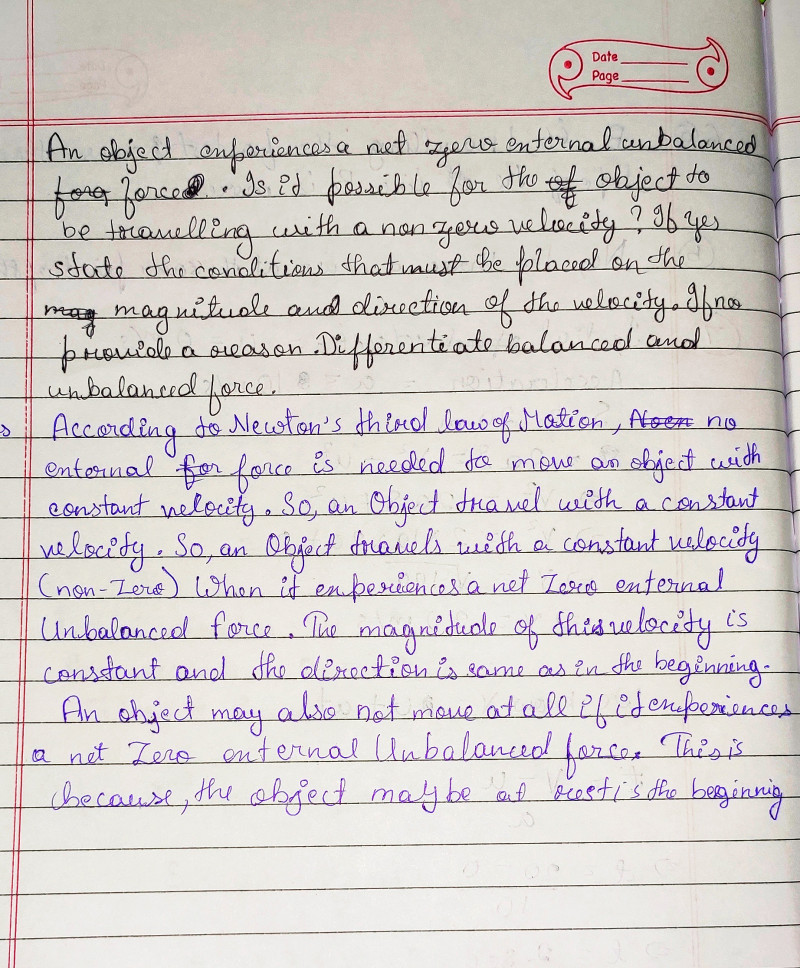 Date
Page
An object experiences a net zero external unbalanced
force. Is it possible for the object to
be travelling with a non zero velocity? If yes
state the conditions that must be placed on the
magnitude and direction of the velocity. If no
provide a reason. Differentiate balanced and
unbalanced force.
s According to Newton's third law of Motion, no
external force is needed to move an object with
constant velocity. So, an Object travel with a constant
velocity. So, an Object travels with a constant velocity
(non-Zero) When it experiences a net Zero external
Unbalanced force. The magnitude of this velocity is
constant and the direction is same as in the beginning.
An object may also not move at all if it experiences
a net Zero external Unbalanced force. This is
because, the object may be at rest is the beginnig